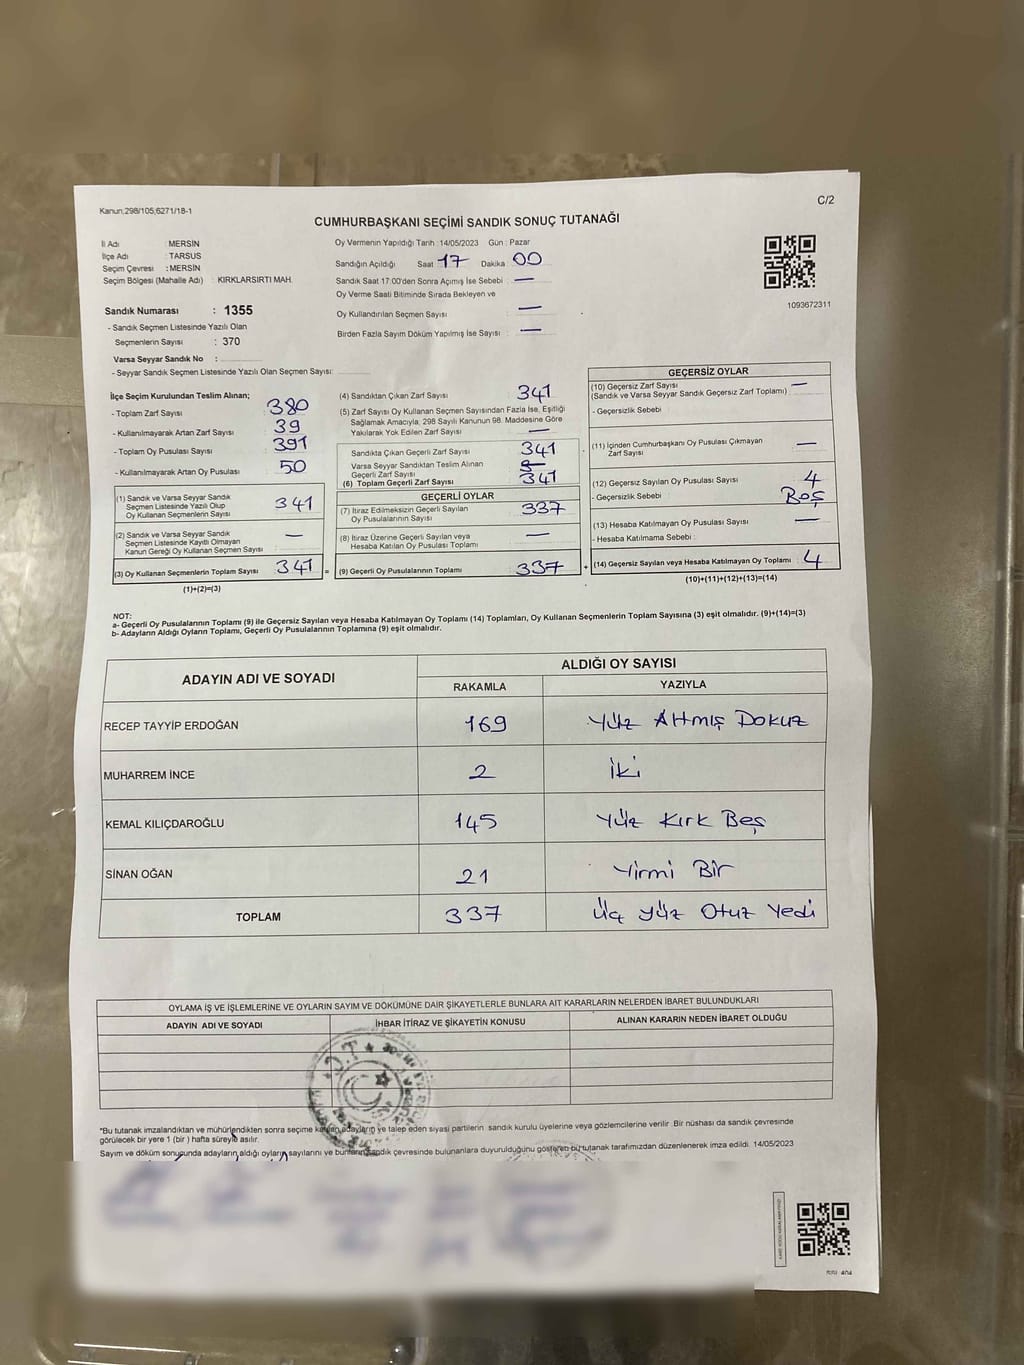 Kanun.298/105,6271/18-1
C/2
CUMHURBAŞKANI SEÇİMİ SANDIK SONUÇ TUTANAĞI
İl Adı : MERSİN
İlçe Adı : TARSUS
Seçim Çevresi : MERSİN
Seçim Bölgesi (Mahalle Adı) : KIRKLARSIRTI MAH.
Oy Vermenin Yapıldığı Tarih :14/05/2023 Gün : Pazar
Sandığın Açıldığı Saat 17 Dakika 00
Sandık Saat 17:00'den Sonra Açımış İse Sebebi : —
Oy Verme Saati Bitiminde Sırada Bekleyen ve
Oy Kullandırılan Seçmen Sayısı : —
Birden Fazla Sayım Döküm Yapılmış İse Sayısı : —
1093672311
Sandık Numarası : 1355
- Sandık Seçmen Listesinde Yazılı Olan
Seçmenlerin Sayısı : 370
Varsa Seyyar Sandık No :
- Seyyar Sandık Seçmen Listesinde Yazılı Olan Seçmen Sayısı:
İlçe Seçim Kurulundan Teslim Alınan;
- Toplam Zarf Sayısı 380
- Kullanılmayarak Artan Zarf Sayısı 39
- Toplam Oy Pusulası Sayısı 391
- Kullanılmayarak Artan Oy Pusulası 50
(1) Sandık ve Varsa Seyyar Sandık
Seçmen Listesinde Yazılı Olup
Oy Kullanan Seçmenlerin Sayısı 341
(2) Sandık ve Varsa Seyyar Sandık
Seçmen Listesinde Kayıtlı Olmayan
Kanun Gereği Oy Kullanan Seçmen Sayısı —
(3) Oy Kullanan Seçmenlerin Toplam Sayısı 341 =
(1)+(2)=(3)
(4) Sandıktan Çıkan Zarf Sayısı 341
(5) Zarf Sayısı Oy Kullanan Seçmen Sayısından Fazla İse, Eşitliği
Sağlamak Amacıyla, 298 Sayılı Kanunun 98. Maddesine Göre
Yakılarak Yok Edilen Zarf Sayısı —
Sandıkta Çıkan Geçerli Zarf Sayısı 341
Varsa Seyyar Sandıktan Teslim Alınan
Geçerli Zarf Sayısı
(6) Toplam Geçerli Zarf Sayısı 341
GEÇERLİ OYLAR
(7) İtiraz Edilmeksizin Geçerli Sayılan
Oy Pusulalarının Sayısı 337
(8) İtiraz Üzerine Geçerli Sayılan veya
Hesaba Katılan Oy Pusulası Toplamı —
(9) Geçerli Oy Pusulalarının Toplamı 337 +
GEÇERSİZ OYLAR
(10) Geçersiz Zarf Sayısı —
(Sandık ve Varsa Seyyar Sandık Geçersiz Zarf Toplamı)
- Geçersizlik Sebebi
(11) İçinden Cumhurbaşkanı Oy Pusulası Çıkmayan
Zarf Sayısı —
(12) Geçersiz Sayılan Oy Pusulası Sayısı 4
- Geçersizlik Sebebi Boş
(13) Hesaba Katılmayan Oy Pusulası Sayısı —
- Hesaba Katılmama Sebebi :
(14) Geçersiz Sayılan veya Hesaba Katılmayan Oy Toplamı 4
(10)+(11)+(12)+(13)=(14)
NOT:
a- Geçerli Oy Pusulalarının Toplamı (9) ile Geçersiz Sayılan veya Hesaba Katılmayan Oy Toplamı (14) Toplamları, Oy Kullanan Seçmenlerin Toplam Sayısına (3) eşit olmalıdır. (9)+(14)=(3)
b- Adayların Aldığı Oyların Toplamı, Geçerli Oy Pusulalarının Toplamına (9) eşit olmalıdır.
ADAYIN ADI VE SOYADI
ALDIĞI OY SAYISI
RAKAMLA YAZIYLA
RECEP TAYYİP ERDOĞAN 169 Yüz Altmış Dokuz
MUHARREM İNCE 2 İki
KEMAL KILIÇDAROĞLU 145 Yüz Kırk Beş
SİNAN OĞAN 21 Yirmi Bir
TOPLAM 337 Üç Yüz Otuz Yedi
OYLAMA İŞ VE İŞLEMLERİNE VE OYLARIN SAYIM VE DÖKÜMÜNE DAİR ŞİKAYETLERLE BUNLARA AİT KARARLARIN NELERDEN İBARET BULUNDUKLARI
ADAYIN ADI VE SOYADI İHBAR İTİRAZ VE ŞİKAYETİN KONUSU ALINAN KARARIN NEDEN İBARET OLDUĞU
*Bu tutanak imzalandıktan ve mühürlendikten sonra seçime katılan adayların ve talep eden siyasi partilerin sandık kurulu üyelerine veya gözlemcilerine verilir. Bir nüshası da sandık çevresinde
görülecek bir yere 1 (bir) hafta süreyle asılır.
Sayım ve döküm sonucunda adayların aldığı oyların sayılarını ve bunların sandık çevresinde bulunanlara duyurulduğunu gösteren bu tutanak tarafımızdan düzenlenerek imza edildi. 14/05/2023